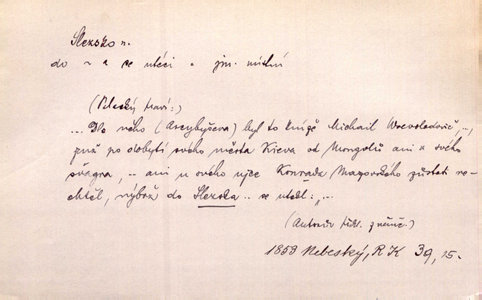 Slezsko n.
do ~ a se utéci - jm. místní
(Palacký praví:)
... Dle něho (Arcybyševa) byl to kníže Michail Wsevoledovič, ...,
jenž po dobytí svého města Kieva od Mongolů ani u svého
švagra, .. ani u svého ujce Konrada Mazovského zůstati ne-
chtěl, nýbrž do Slezska .. se utekl: „...
(Autorův překl. z němč.)
1853 Nebeský, RK 39, 15.